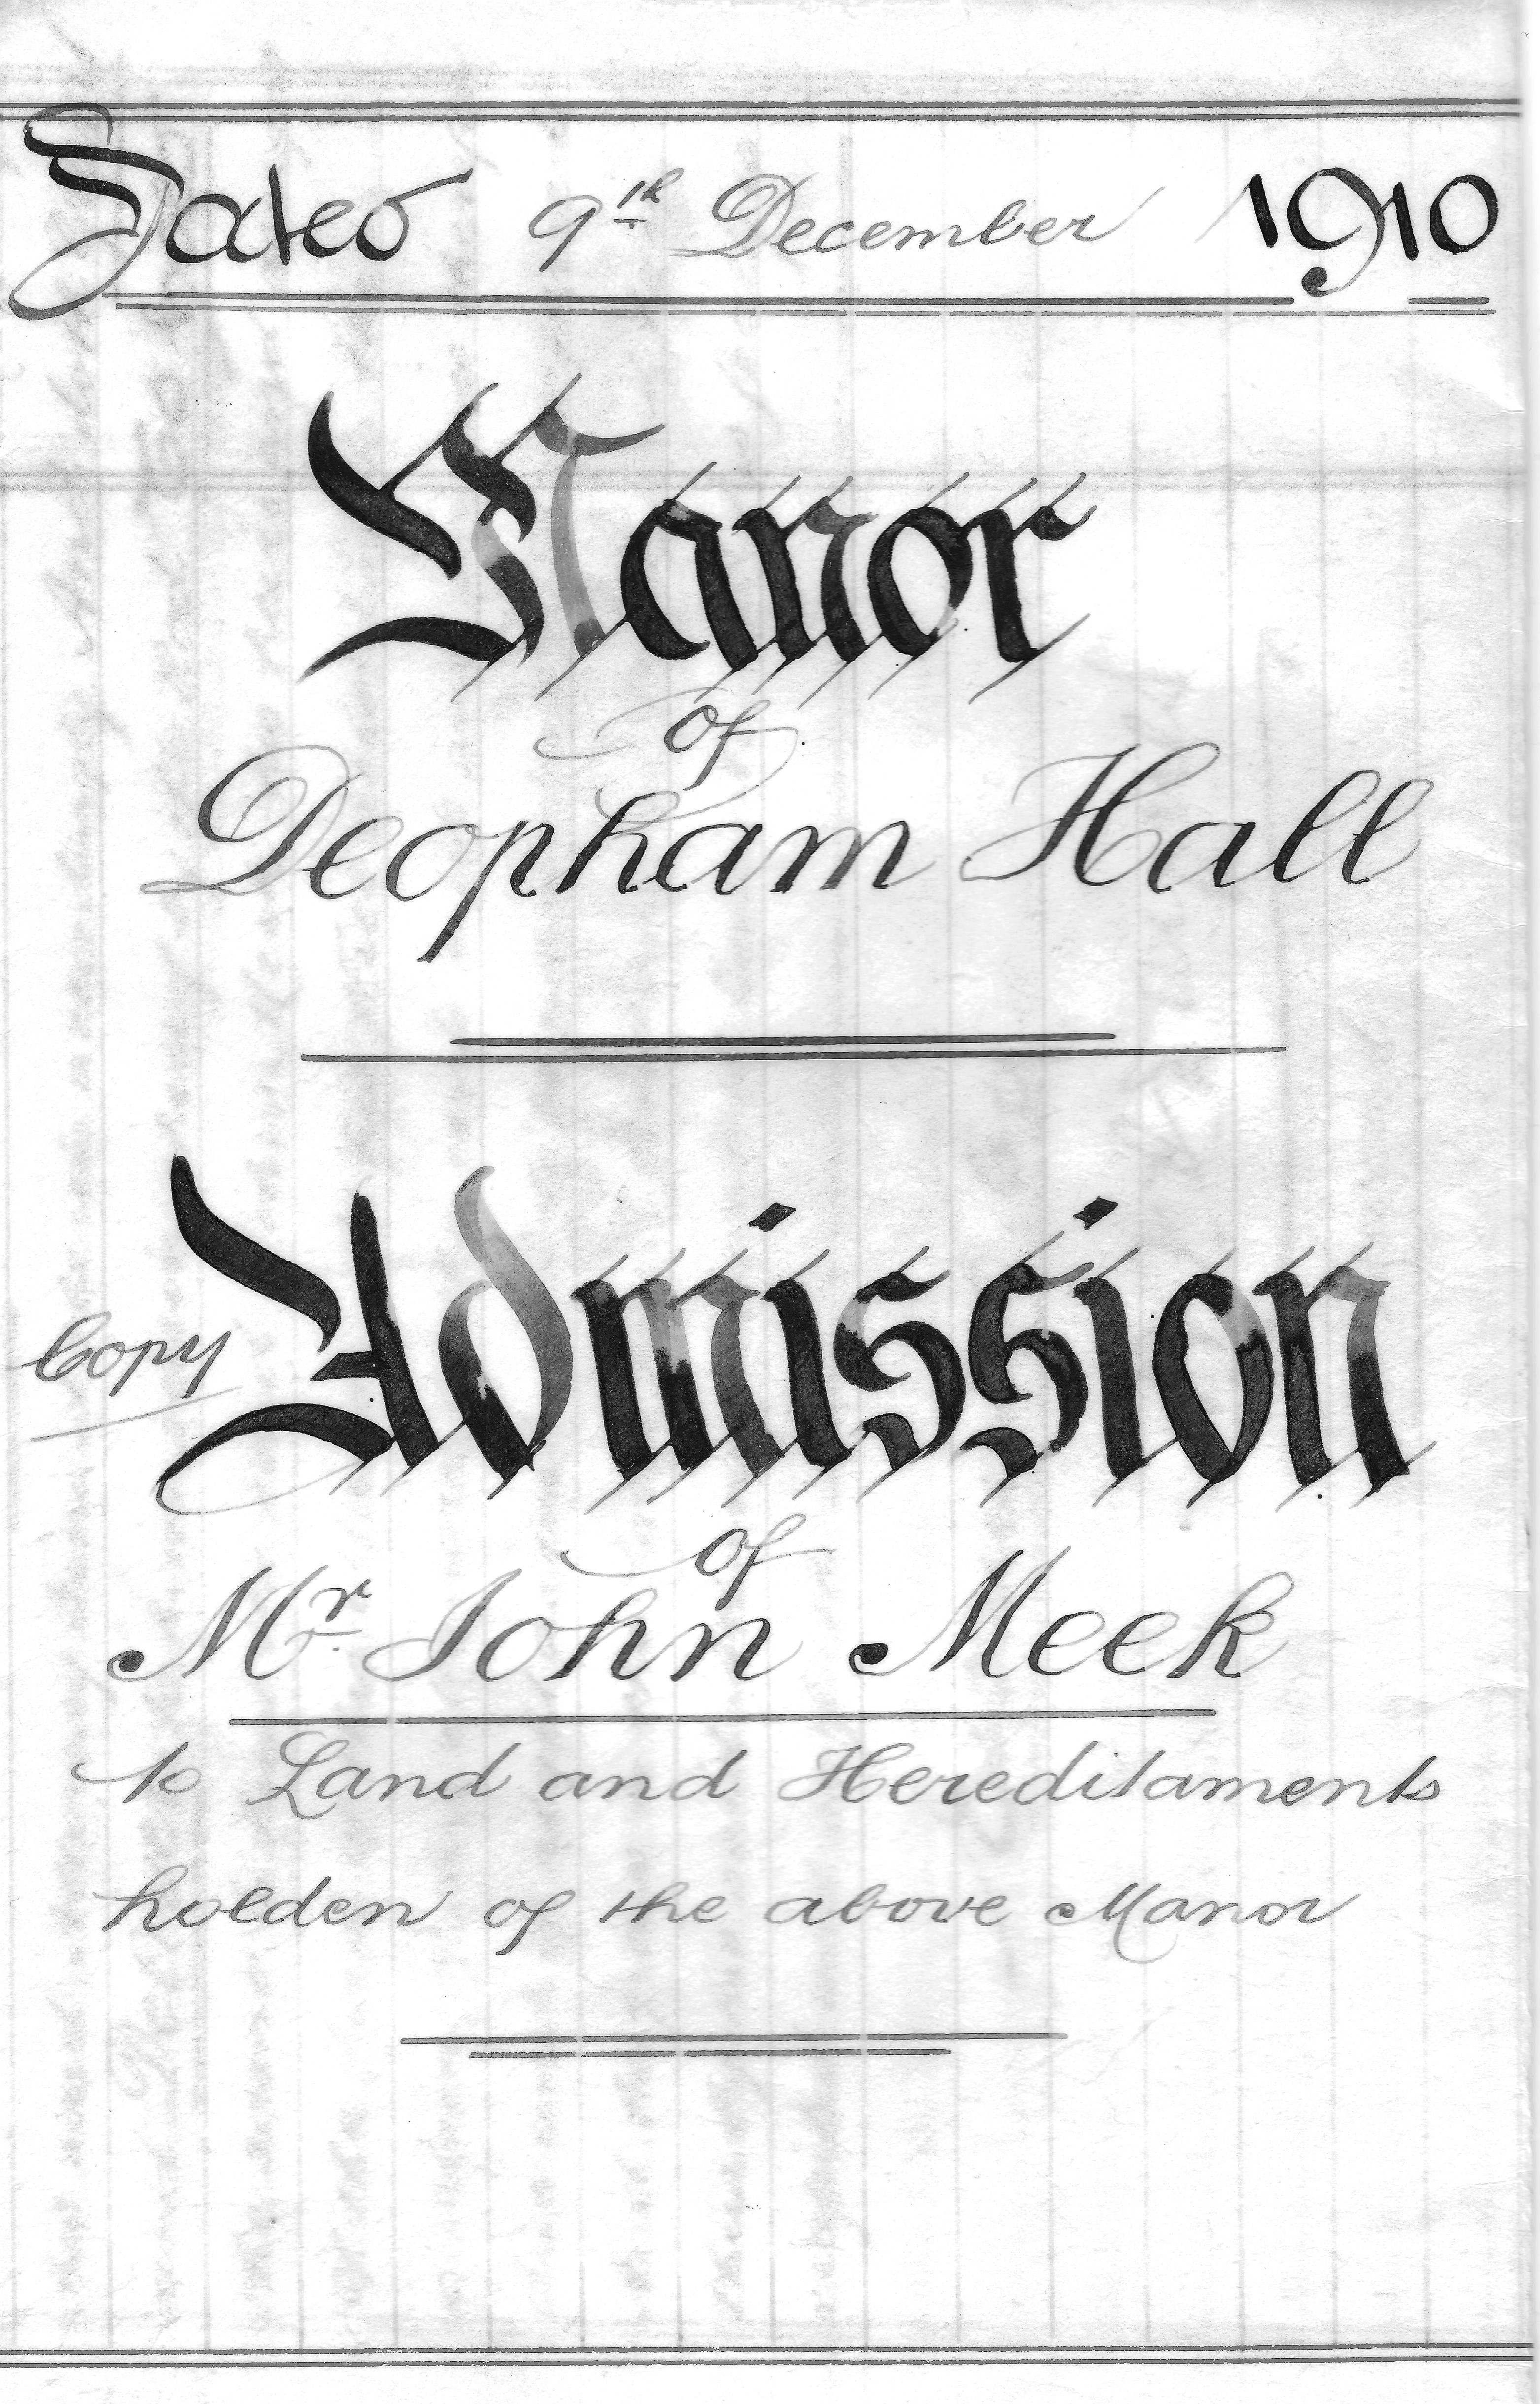 Dated 9th December 1910
Manor
of
Deopham Hall
Copy Admission
of
Mr John Meek
to Land and Hereditaments
holden of the above Manor